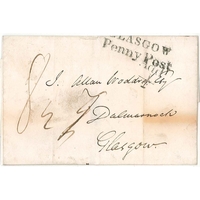 GLASGOW
Penny Post
J. Allan Woddrop Esq
Dalmarnock
Glasgow.